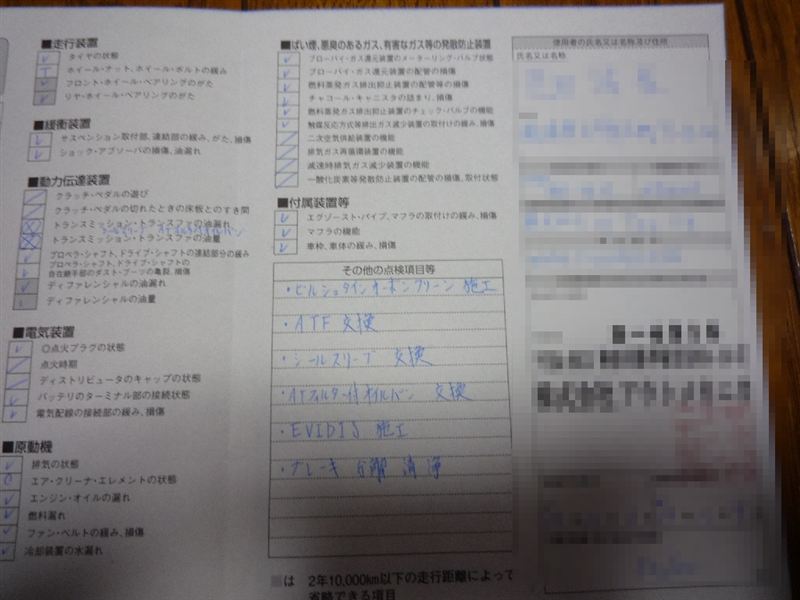 ■走行装置
タイヤの状態
ホイール・ナット、ホイール・ボルトの緩み
フロント・ホイール・ベアリングのがた
リヤ・ホイール・ベアリングのがた
■緩衝装置
サスペンション取付部、連結部の緩み、がた、損傷
ショック・アブソーバの損傷、油漏れ
■動力伝達装置
クラッチ・ペダルの遊び
クラッチ・ペダルの切れたときの床板とのすき間
トランスミッション・トランスファの油漏れ
トランスミッション・トランスファの油量
プロペラ・シャフト、ドライブ・シャフトの連結部分の緩み
プロペラ・シャフト、ドライブ・シャフトの
自在継手部のダスト・ブーツの亀裂、損傷
ディファレンシャルの油漏れ
ディファレンシャルの油量
■電気装置
◎点火プラグの状態
点火時期
ディストリビュータのキャップの状態
バッテリのターミナル部の接続状態
電気配線の接続部の緩み、損傷
■原動機
排気の状態
エア・クリーナ・エレメントの状態
エンジン・オイルの漏れ
燃料漏れ
ファン・ベルトの緩み、損傷
冷却装置の水漏れ
■ばい煙、悪臭のあるガス、有害なガス等の発散防止装置
ブローバイ・ガス還元装置のメーターリング・バルブ状態
ブローバイ・ガス還元装置の配管の損傷
燃料蒸発ガス排出抑止装置の配管等の損傷
チャコール・キャニスタの詰まり、損傷
燃料蒸発ガス排出抑止装置のチェック・バルブの機能
触媒反応方式等排出ガス減少装置の取付けの緩み、損傷
二次空気供給装置の機能
排気ガス再循環装置の機能
減速時排気ガス減少装置の機能
一酸化炭素等発散防止装置の配管の損傷、取付状態
■付属装置等
エグゾースト・パイプ、マフラの取付けの緩み、損傷
マフラの機能
車枠、車体の緩み、損傷
その他の点検項目等
・ビルシュタインオーボンクリーン 施工
・ATF 交換
・シールスリーブ 交換
・ATフィルター付オイルパン 交換
・EVIDIS 施工
・ブレーキ 分解 清浄
■は 2年10,000km以下の走行距離によって
省略できる項目
使用者の氏名又は名称及び住所
氏名又は名称